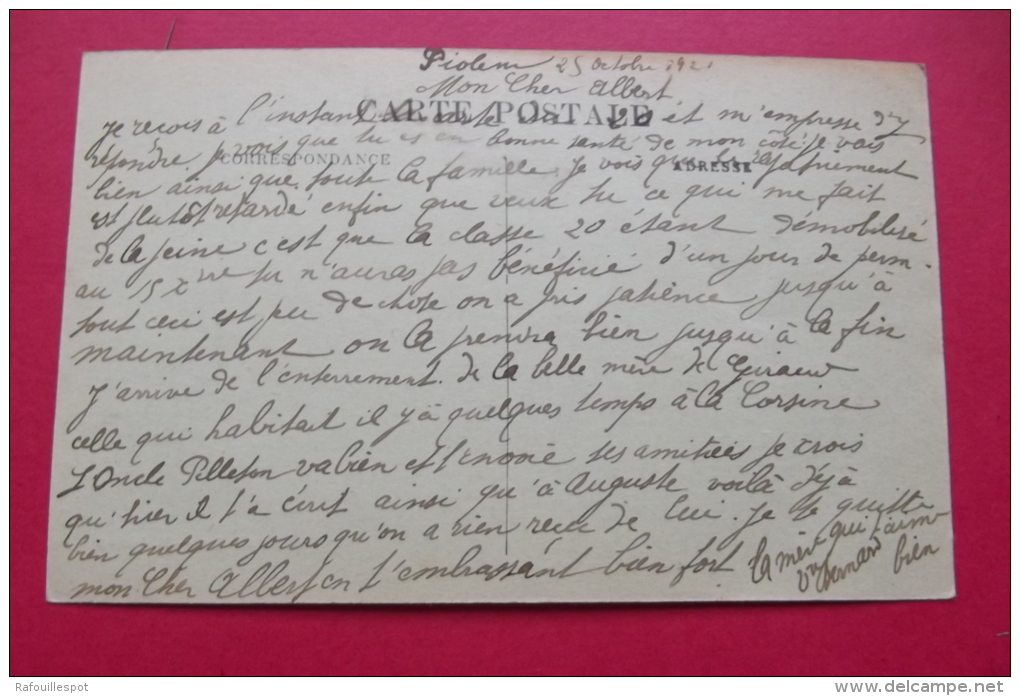 Piolenc 25 Octobre 1921
Mon Cher Albert
CARTE POSTALE
je reçois à l'instant ta carte du 20 et m'empresse d'y
répondre je vois que tu es en bonne santé de mon côté je vais
CORRESPONDANCE
ADRESSE
bien ainsi que toute la famille, je vois que le
est plutôt retardé enfin que veux tu ce qui me fait
de la peine c'est que la classe 20 étant démobilisé
au 15 Xbre tu n'auras pas bénéficié d'un jour de perm.
tout ceci est peu de chose on a pris patience jusqu'à
maintenant on la prendra bien jusqu'à la fin
J'arrive de l'enterrement de la belle mère de Giraud
celle qui habitait il y a quelques temps à la Corsine
L'Oncle Pelleton va bien et t'envoie ses amitiées je crois
qu'hier il t'a écrit ainsi qu'à Auguste voilà déjà
bien quelques jours qu'on a rien reçu de lui. Je te quitte
mon Cher Albert en t'embrassant bien fort
ta mère qui t'aime
bien
Vve Bernard
Rafouillespot
www.delcampe.net